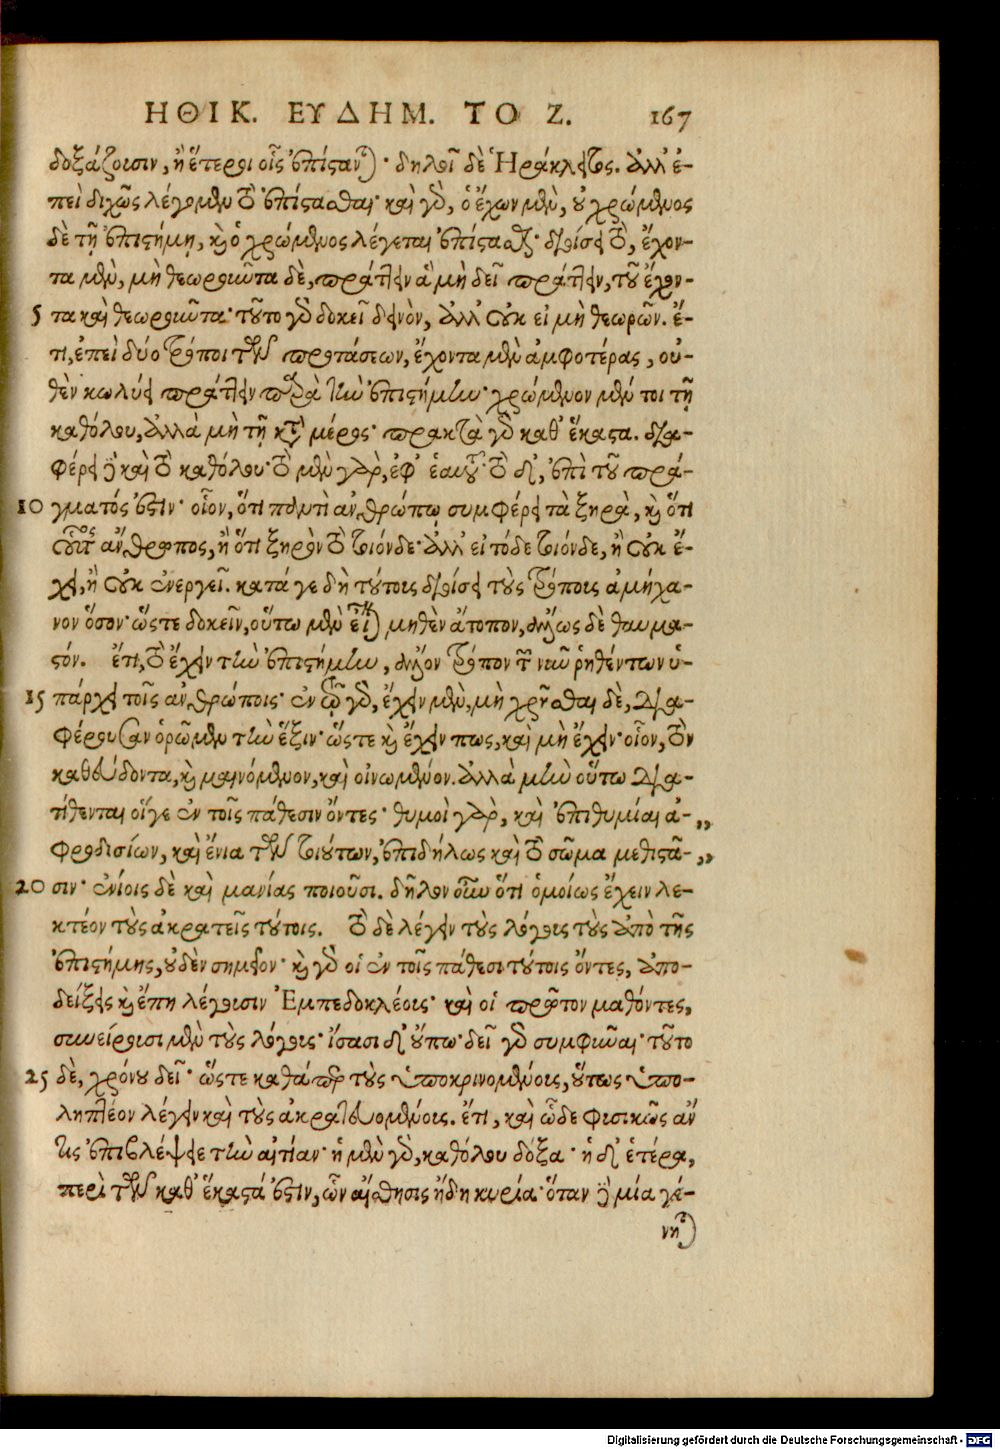 ΗΘΙΚ. ΕΥΔΗΜ. ΤΟ Ζ. 167
δοξάζουσιν, ἢ ἕτεροι οἷς ἐπίςανται· δηλοῖ δὲ Ἡράκλειτος. ἀλλ' ἐ-
πεὶ διχῶς λέγομεν τὸ ἐπίςασθαι· καὶ γὸ, ὁ ἔχων μὲν, οὐ χρώμενος
δὲ τῇ ἐπιςήμῃ, καὶ ὁ χρώμενος λέγεται ἐπίςασθαι· διοίσει τὸ, ἔχον-
τα μὲν, μὴ θεωροῦντα δὲ, πράττειν ἃ μὴ δεῖ πράττειν, τοῦ ἔχον-
5 τα καὶ θεωροῦντα· τοῦτο γὸ δοκεῖ δεινὸν, ἀλλ' οὐκ εἰ μὴ θεωρῶν. ἔ-
τι, ἐπεὶ δύο τρόποι τῶν προτάσεων, ἔχοντα μὲν ἀμφοτέρας, οὐ-
θὲν κωλύει πράττειν παρὰ τὴν ἐπιςήμην· χρώμενον μέν τοι τῇ
καθόλου, ἀλλὰ μὴ τῇ κατὰ μέρος· πρακτὰ γὸ καθ' ἕκαςα. δια-
φέρει δὲ καὶ τὸ καθόλου· τὸ μὲν γὰρ, ἐφ' ἑαυτοῦ· τὸ δ', ἐπὶ τοῦ πρά-
10 γματός ἐςιν· οἷον, ὅτι παντὶ ἀνθρώπῳ συμφέρει τὰ ξηρὰ, καὶ ὅτι
οὗτος ἄνθρωπος, ἢ ὅτι ξηρὸν τὸ τοιόνδε· ἀλλ' εἰ τόδε τοιόνδε, ἢ οὐκ ἔ-
χει, ἢ οὐκ ἐνεργεῖ. κατά γε δὴ τούτοις διοίσει τοὺς τρόποις ἀμήχα-
νον ὅσον· ὥςτε δοκεῖν, οὕτω μὲν εἶναι μηθὲν ἄτοπον, ἄλλως δὲ θαυμα-
ςόν. ἔτι, τὸ ἔχειν τὴν ἐπιςήμην, ἄλλον τρόπον τῶν νῦν ῥηθέντων ὑ-
15 πάρχει τοῖς ἀνθρώποις· ἐν τῷ γὸ, ἔχειν μὲν, μὴ χρῆσθαι δὲ, δια-
φέρουσαν ὁρῶμεν τὴν ἕξιν· ὥςτε καὶ ἔχειν πως, καὶ μὴ ἔχειν· οἷον, τὸν
καθεύδοντα, καὶ μαινόμενον, καὶ οἰνωμένον. ἀλλὰ μὴν οὕτω δια-
τίθενται οἵγε ἐν τοῖς πάθεσιν ὄντες· θυμοὶ γὰρ, καὶ ἐπιθυμίαι ἀ- „
φροδισίων, καὶ ἔνια τῶν τοιούτων, ἐπιδήλως καὶ τὸ σῶμα μεθιςᾶ- „
20 σιν· ἐνίοις δὲ καὶ μανίας ποιοῦσι. δῆλον οὖν ὅτι ὁμοίως ἔχειν λε-
κτέον τοὺς ἀκρατεῖς τούτοις. τὸ δὲ λέγειν τοὺς λόγοις τοὺς ἀπὸ τῆς
ἐπιςήμης, οὐδὲν σημεῖον· καὶ γὸ οἱ ἐν τοῖς πάθεσι τούτοις ὄντες, ἀπο-
δείξεις καὶ ἔπη λέγοισιν Ἐμπεδοκλέοις· καὶ οἱ πρῶτον μαθόντες,
συνείροισι μὲν τοὺς λόγοις· ἴσασι δ' οὔπω· δεῖ γὸ συμφῦναι· τοῦτο
25 δὲ, χρόνου δεῖ· ὥςτε καθάπερ τοὺς ὑποκρινομένοις, οὕτως ὑπο-
ληπτέον λέγειν καὶ τοὺς ἀκρατευομένοις. ἔτι, καὶ ὧδε φισικῶς ἄν
τις ἐπιβλέψειε τὴν αἰτίαν· ἡ μὲν γὸ, καθόλου δόξα· ἡ δ' ἑτέρα,
περὶ τῶν καθ' ἕκαςά ἐςιν, ὧν αἴσθησις ἤδη κυρία· ὅταν δὲ μία γέ-
νηται
Digitalisierung gefördert durch die Deutsche Forschungsgemeinschaft - DFG